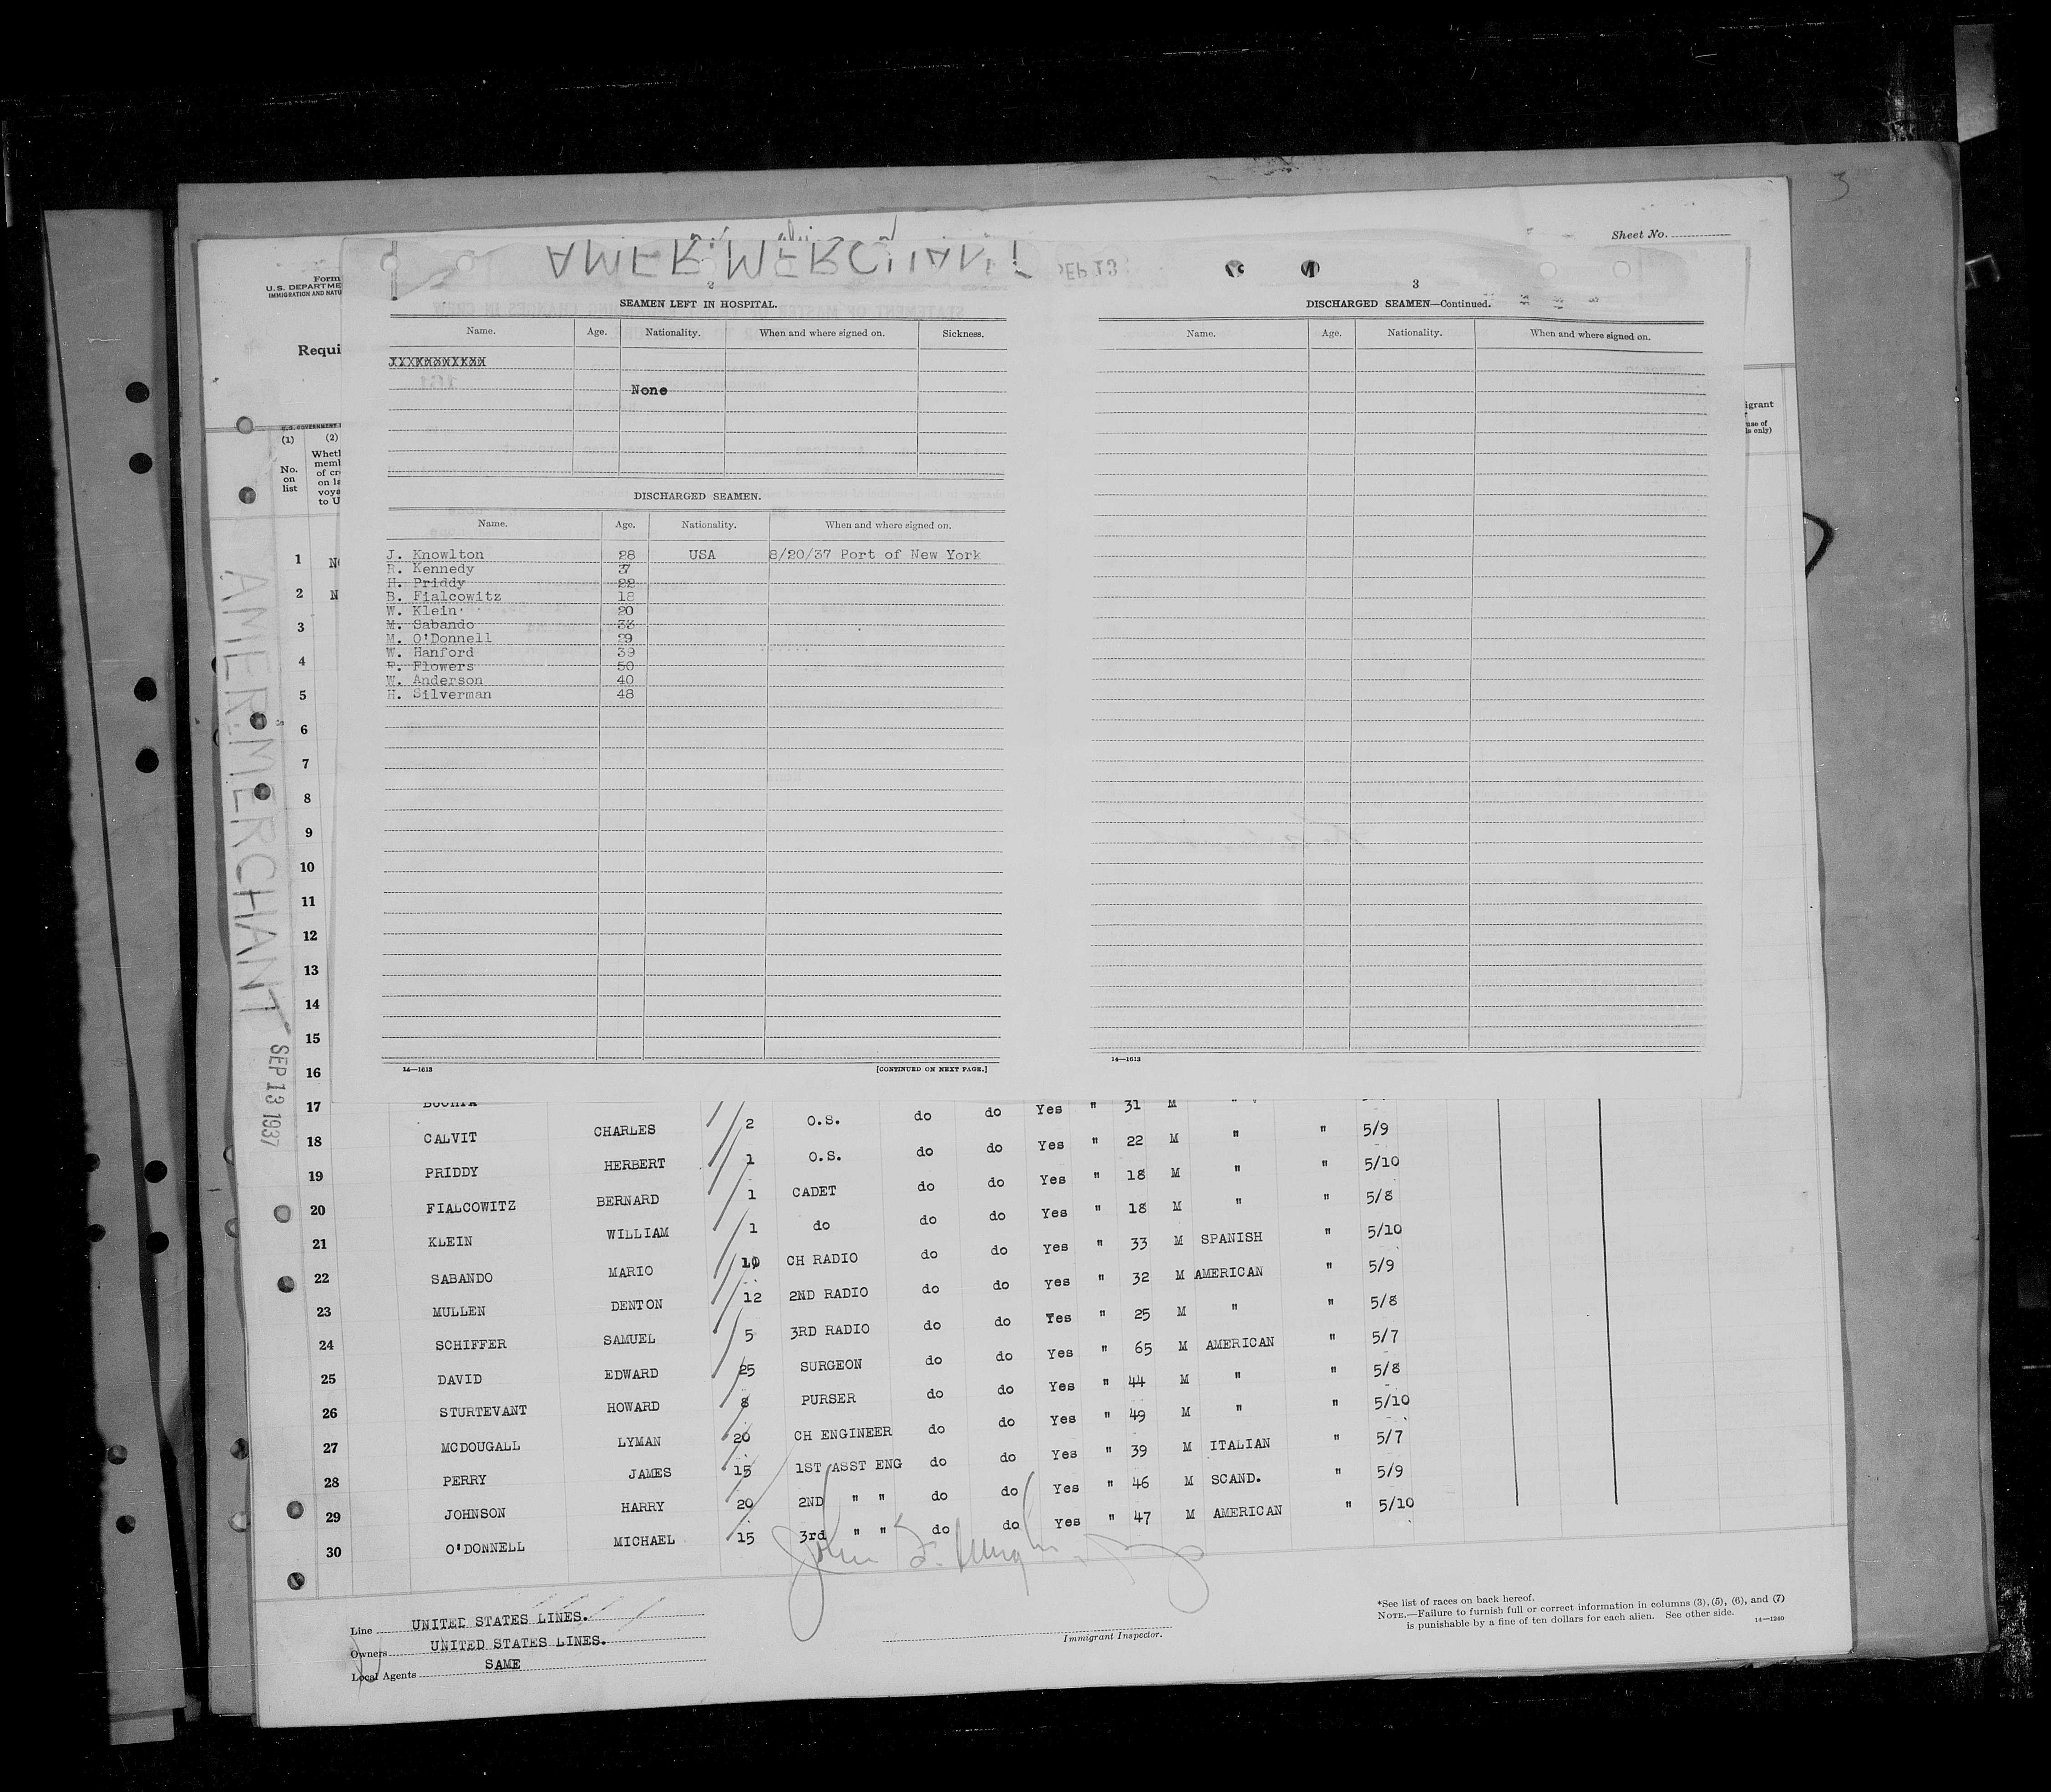 3
Sheet No.
AMER. MERCHANT
SEP 13
Form
U.S. DEPARTME
IMMIGRATION AND NATU
Requi
U.S. GOVERNMENT
(1) (2)
No. on list
Wheth
memb
of cre
on la
voya
to U
igrant
r
use of
ls only)
2
SEAMEN LEFT IN HOSPITAL.
Name. Age. Nationality. When and where signed on. Sickness.
None
DISCHARGED SEAMEN.
Name. Age. Nationality. When and where signed on.
J. Knowlton 28 USA 8/20/37 Port of New York
R. Kennedy 37
H. Priddy 22
B. Fialcowitz 18
W. Klein 20
M. Sabando 33
M. O'Donnell 29
W. Hanford 39
F. Flowers 50
W. Anderson 40
H. Silverman 48
14—1613 [CONTINUED ON NEXT PAGE.]
3
DISCHARGED SEAMEN—Continued.
Name. Age. Nationality. When and where signed on.
14—1613
AMER. MERCHANT SEP 13 1937
1 NO
2 N
3
4
5
6
7
8
9
10
11
12
13
14
15
16
17 31 M "
18 CALVIT CHARLES 2 O.S. do do Yes " 22 M " " 5/9
19 PRIDDY HERBERT 1 O.S. do do Yes " 18 M " " 5/10
20 FIALCOWITZ BERNARD 1 CADET do do Yes " 18 M " " 5/8
21 KLEIN WILLIAM 1 do do do Yes " 33 M SPANISH " 5/10
22 SABANDO MARIO 10 CH RADIO do do yes " 32 M AMERICAN " 5/9
23 MULLEN DENTON 12 2ND RADIO do do Yes " 25 M " " 5/8
24 SCHIFFER SAMUEL 5 3RD RADIO do do Yes " 65 M AMERICAN " 5/7
25 DAVID EDWARD 25 SURGEON do do Yes " 44 M " " 5/8
26 STURTEVANT HOWARD 8 PURSER do do Yes " 49 M " " 5/10
27 MCDOUGALL LYMAN 20 CH ENGINEER do do Yes " 39 M ITALIAN " 5/7
28 PERRY JAMES 15 1ST ASST ENG do do Yes " 46 M SCAND. " 5/9
29 JOHNSON HARRY 20 2ND " " do do Yes " 47 M AMERICAN " 5/10
30 O'DONNELL MICHAEL 15 3rd " " do do
Line UNITED STATES LINES.
Owners UNITED STATES LINES.
Local Agents SAME
Immigrant Inspector.
*See list of races on back hereof.
NOTE.—Failure to furnish full or correct information in columns (3), (5), (6), and (7)
is punishable by a fine of ten dollars for each alien. See other side. 14—1240